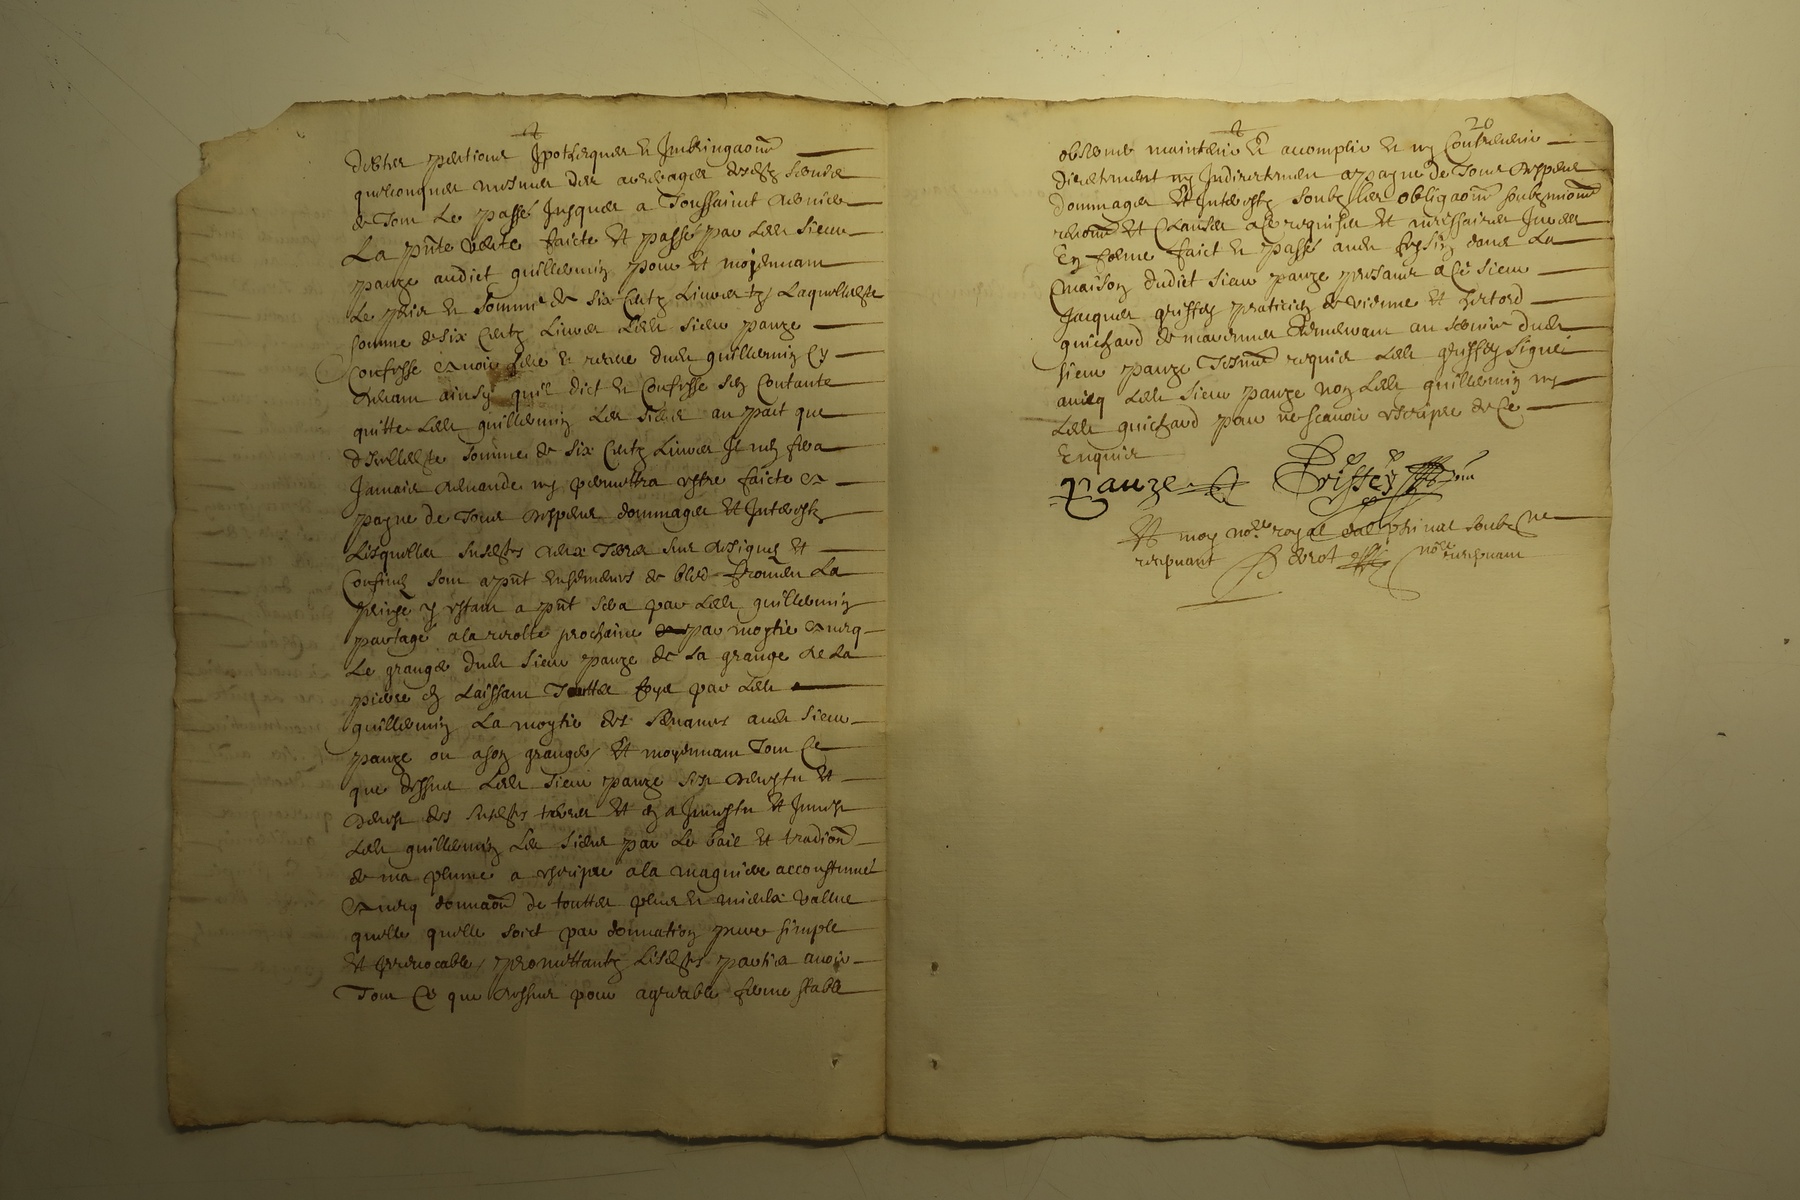 dictes pentions Ipotecques et Imbringaons
quelconques mesmes des arreages desdits servis
de Tout le passé Jusques a Toussainct dernier
La pnte vente faicte et passé par ledit sieur
panze audict guillermin pour et moyennant
Le prix et somme de six Centz Livres tz Laquelle
somme de six Centz Livres ledit sieur panze
Confesse avoir heu et receu dudit guillermin cy
devant ainsy quil dict et Confesse sen Contante
quitte ledit guillermin Les siens au pact que
dicelle somme de six Centz Livres Il nen fera
Jamais demande ny permettra estre faicte a
payne de Tous despens dommages et Interestz
Lesquelles susdites deux Terres sus designes et
Confines sont a pnt ensemences de bled froment La
prinse y estant a pnt sera par ledit guillermin
partagé a la recolte prochaine par moytie avecq
Le granger dudit sieur panze de sa grange de la
pierre en Laissant Touttes foys par ledit
guillermin La moytie des semences audit sieur
panze ou a son granger Et moyennant Tout Ce
que dessus ledit sieur panze sest devestu et
devest des susdites terres Et en a Investu et Invest
ledit guillermin Les siens par Le bail et tradion
de ma plume a escripre a la magniere accoustumeé
avecq donnaon de touttes plus et mieulx vallue
quelle quelle soict par donnation pure simple
et Irrevocable promettantz Lesdites parties avoir
Tout Ce que dessus pour agreable ferme stable
20
observer maintenir et accomplir et ny Contrevenir
directement ny Indirectement a payne de Tous despens
dommages et Interestz soubz les obligaons soubzmions
renons et Clauses a Ce requises et necessaires Jurees
En forme faict et passé audit
maison dudict sieur panze presants a Ce sieur
Jacques griffey praticien de vienne et
guichard de demeurant au service dudit
sieur panze Tesmoins requis ledit griffey signé
avecq ledit sieur panze non ledit guillermin ny
ledit guichard pour ne scavoir escripre de Ce
Enquis
panze Griffey
Et moy nore royal dalphinal soubzne
recepvant nore recepvant